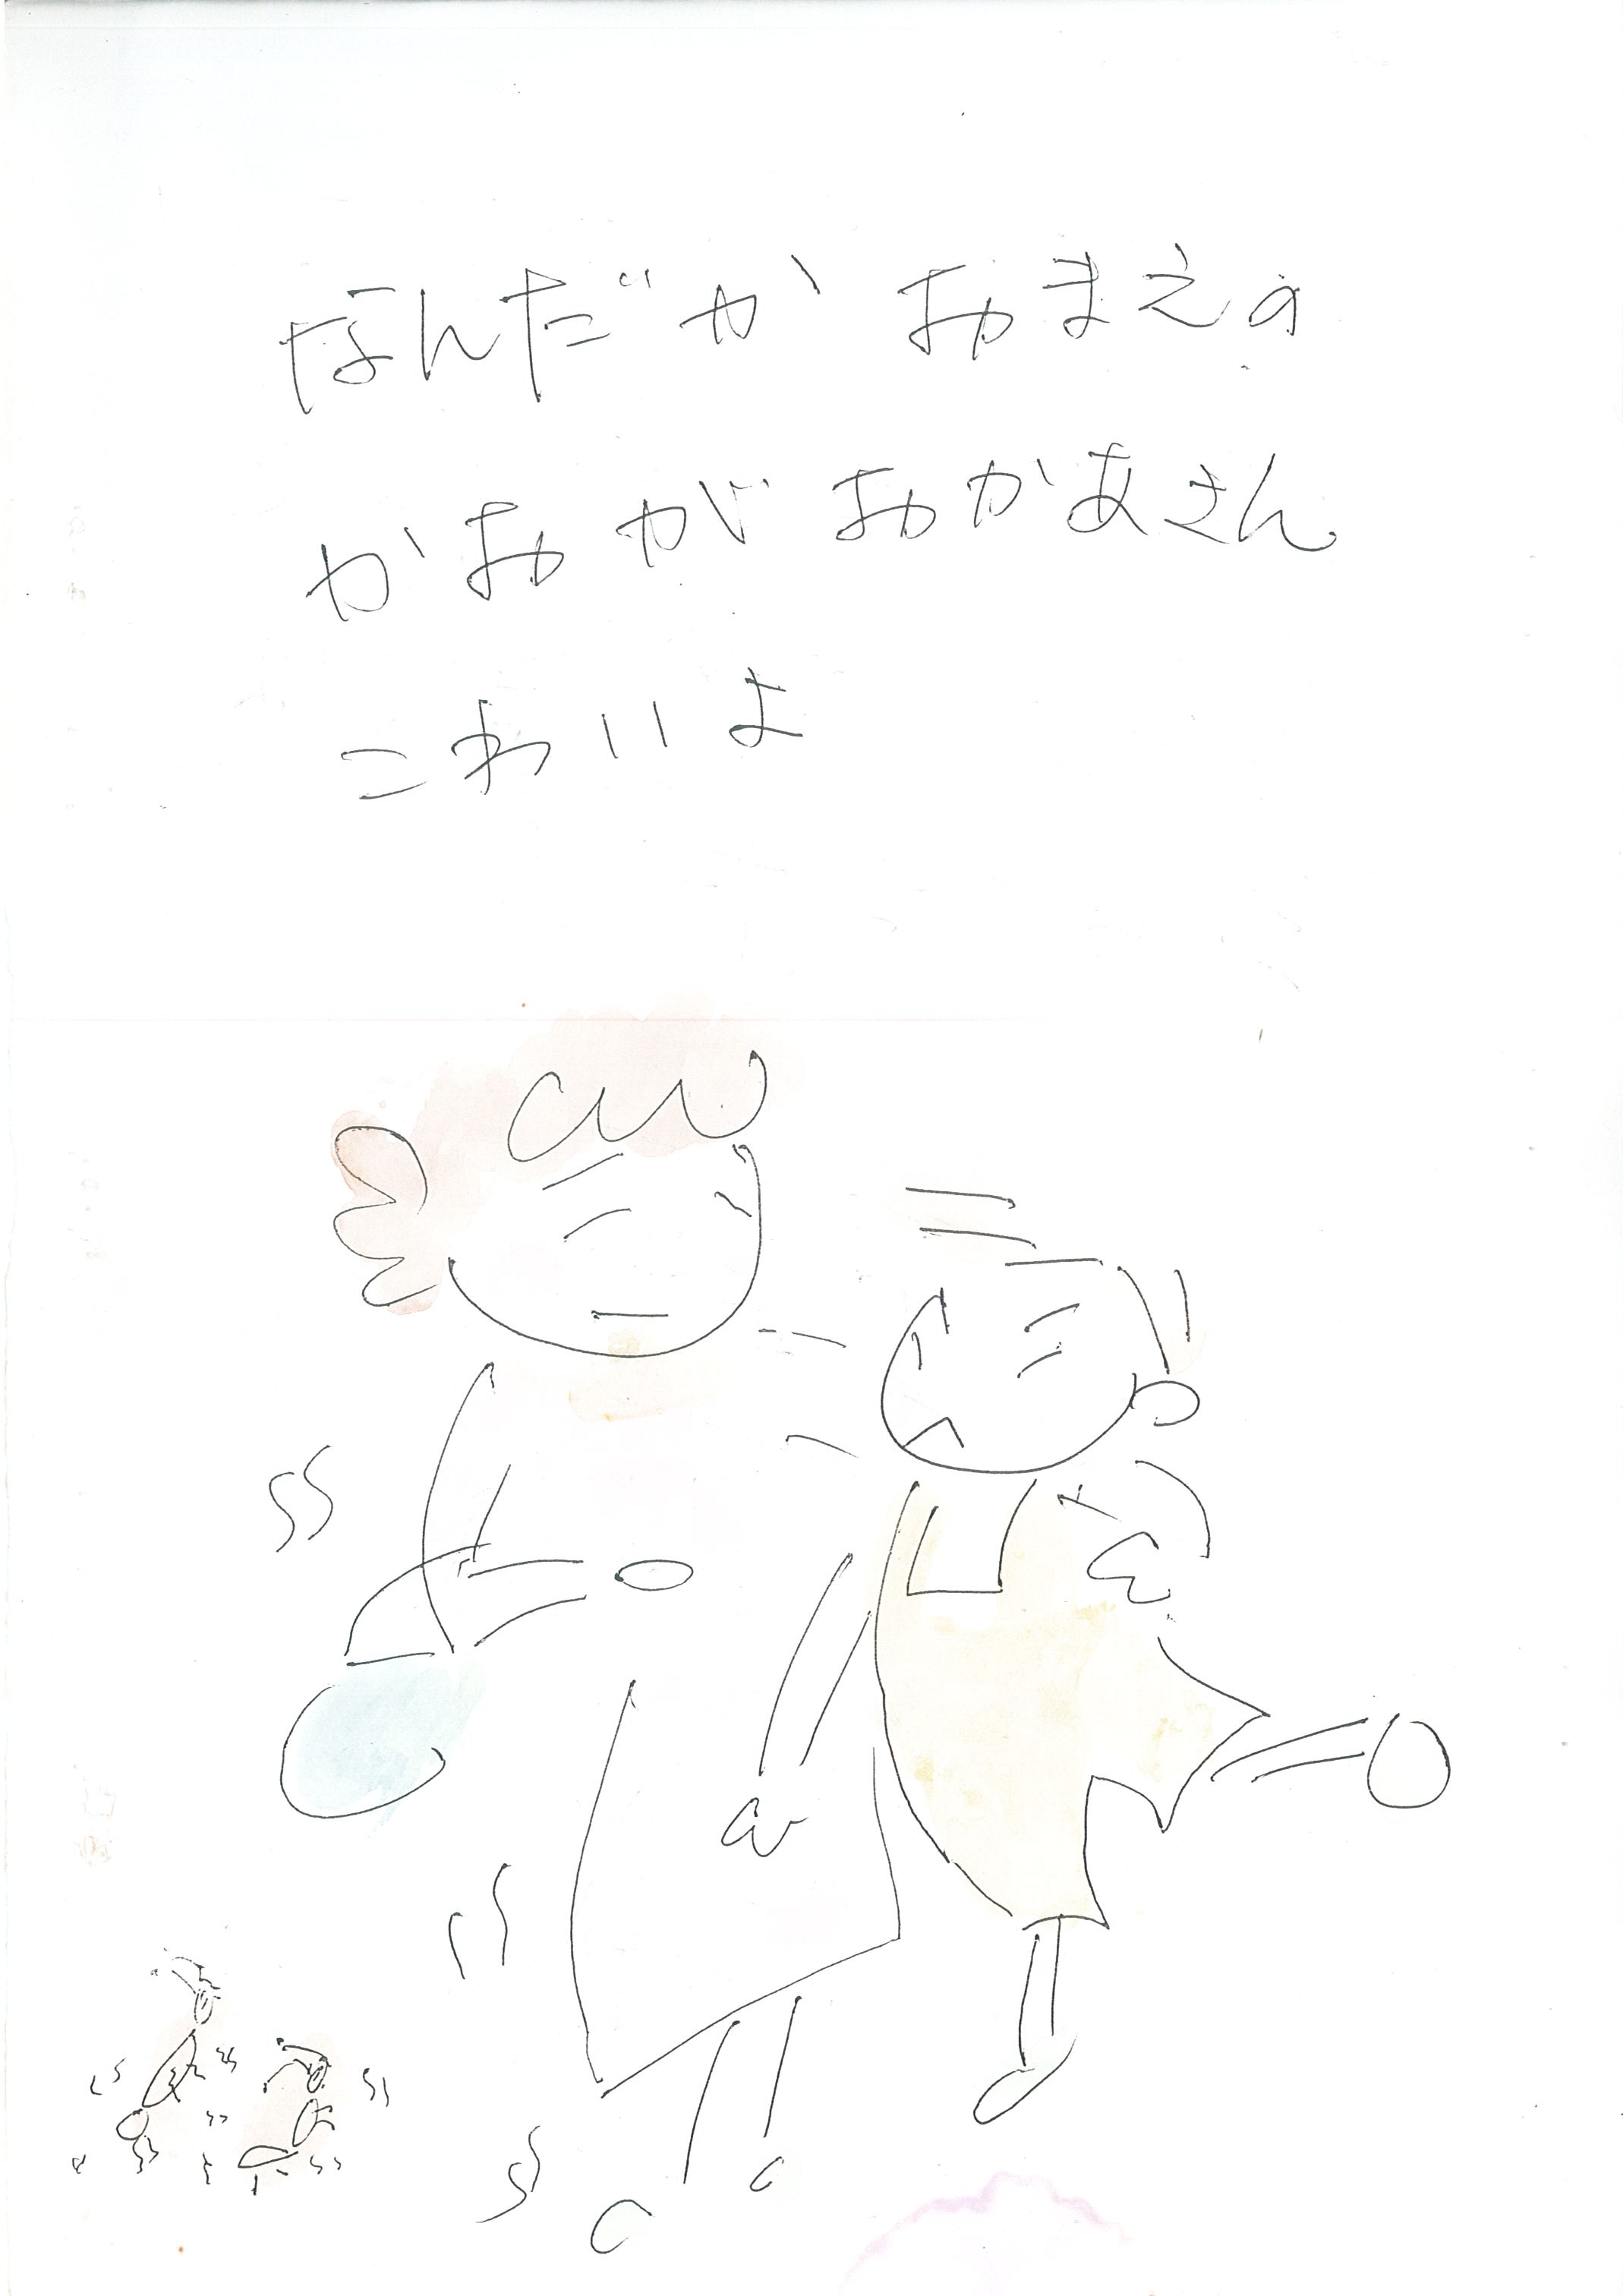 なんだか おまえの
かおが おかあさん
こわいよ